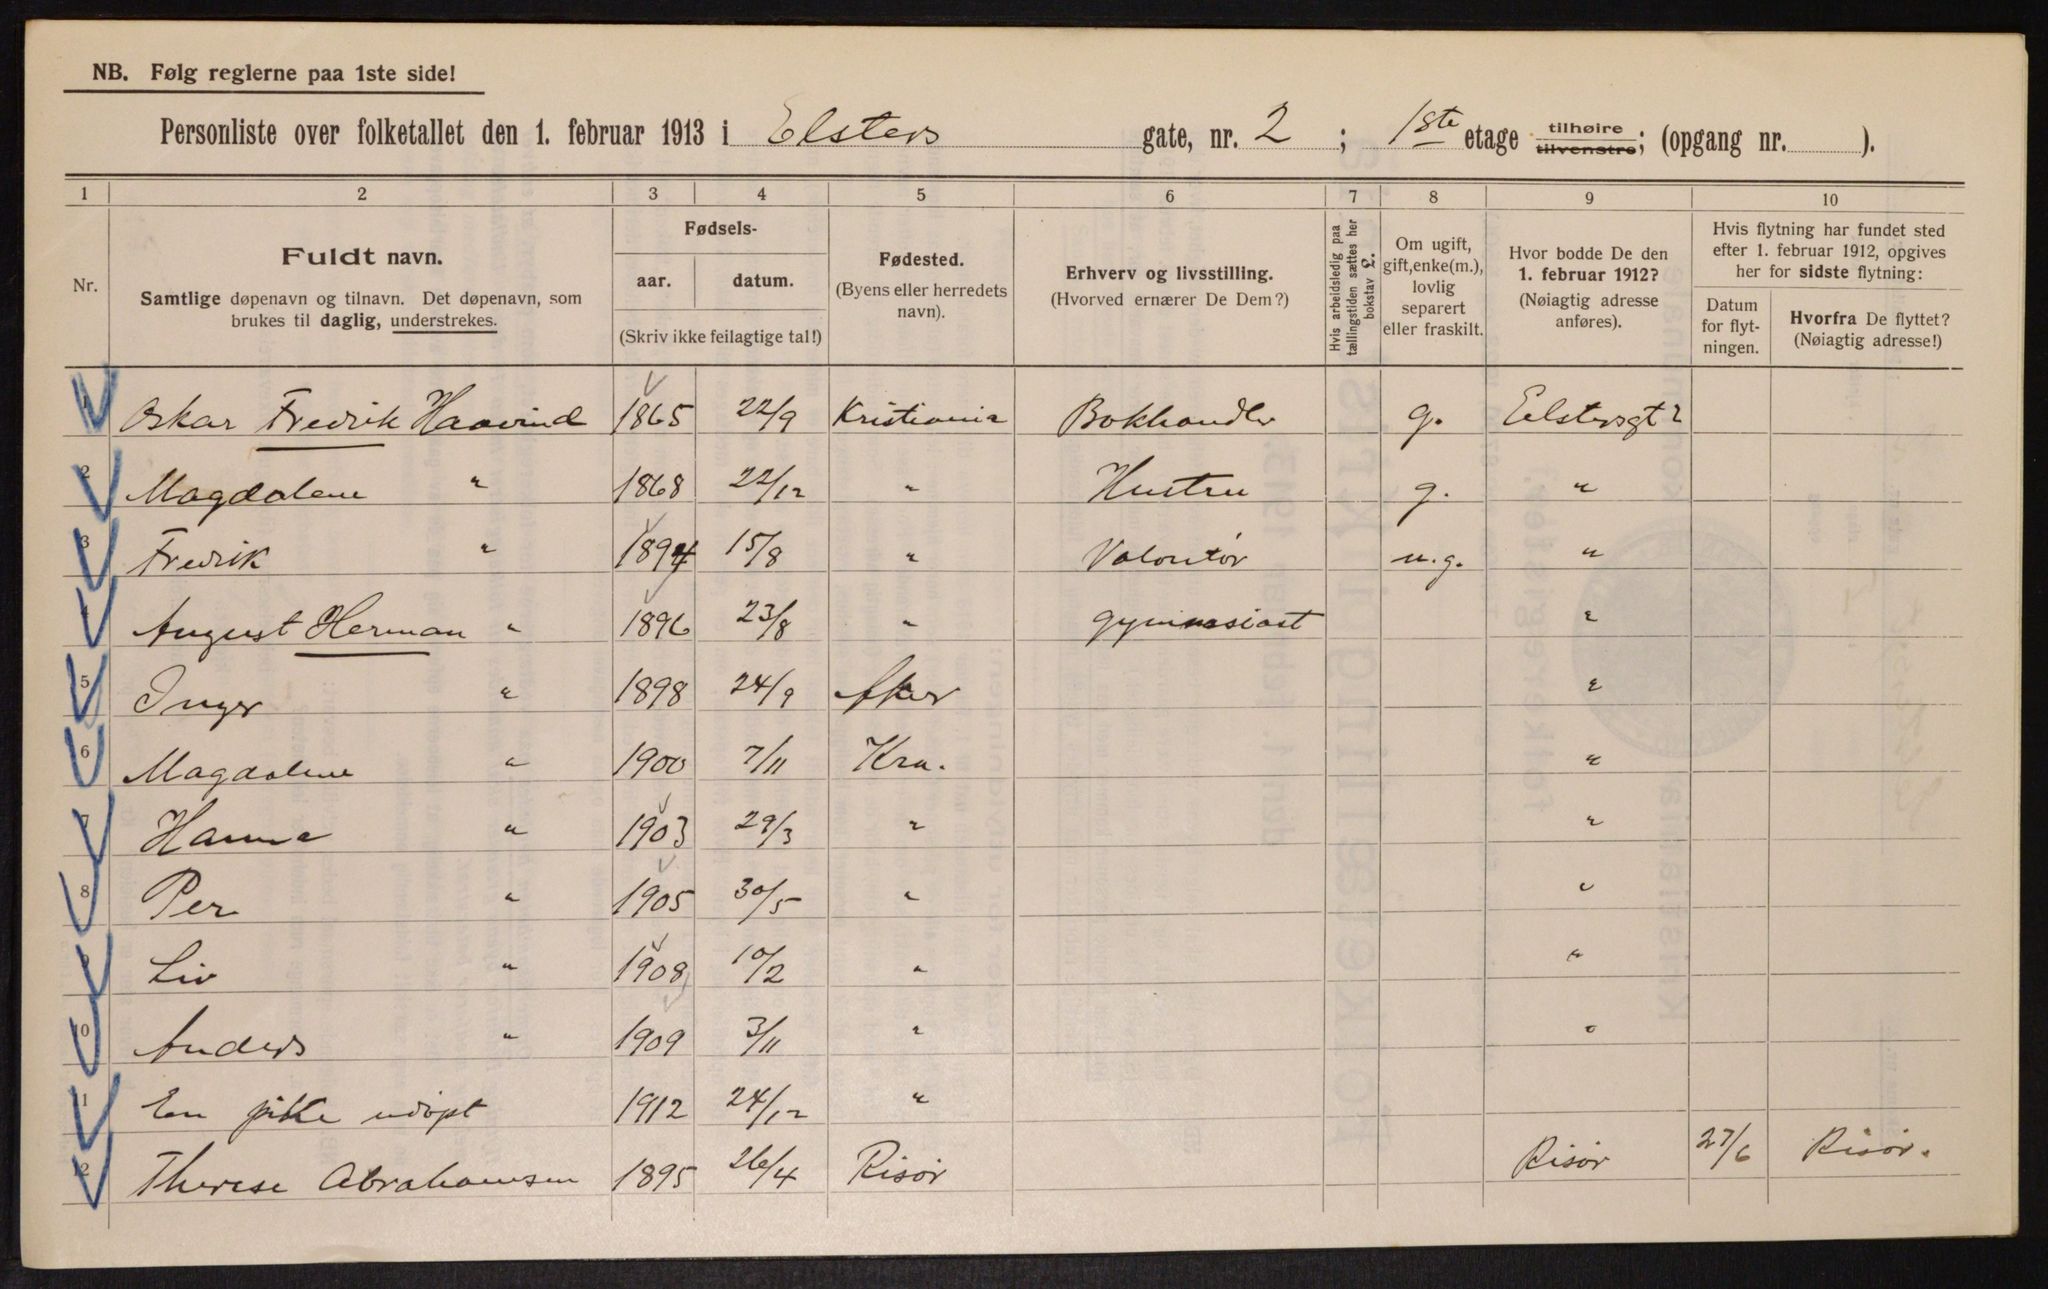 NB. Følg reglerne paa 1ste side!
Personliste over folketallet den 1. februar 1913 i Elsters gate, nr. 2 ; 1ste etage tilhøire tilvenstre; (opgang nr. ).
1 2 3 4 5 6 7 8 9 10
Nr.
Fuldt navn.
Samtlige døpenavn og tilnavn. Det døpenavn, som
brukes til daglig, understrekes.
Fødsels-
aar. datum.
(Skriv ikke feilagtige tal!)
Fødested.
(Byens eller herredets
navn).
Erhverv og livsstilling.
(Hvorved ernærer De Dem?)
Hvis arbeidsledig paa
tællingstiden sættes her
bokstav L.
Om ugift,
gift, enke(m.),
lovlig
separert
eller fraskilt.
Hvor bodde De den
1. februar 1912?
(Nøiagtig adresse
anføres).
Hvis flytning har fundet sted
efter 1. februar 1912, opgives
her for sidste flytning:
Datum
for flyt-
ningen.
Hvorfra De flyttet?
(Nøiagtig adresse!)
1 Oskar Fredrik Haavind 1865 22/9 Kristiania Bokhandler g. Eelstersgt 2
2 Magdalene " 1868 22/12 " Hustru g. "
3 Fredrik " 1894 15/8 " Volontør u.g. "
4 August Herman " 1896 23/8 " gymnasiast "
5 Inger " 1898 24/9 Aker "
6 Magdalene " 1900 7/11 Kra. "
7 Hanna " 1903 29/3 " "
8 Per " 1905 30/5 " "
9 Liv " 1908 10/2 " "
10 Anders " 1909 3/11 " "
11 En pike udøpt 1912 24/12 "
12 Therese Abrahamsen 1895 26/4 Risør Risør 27/6 Risør.